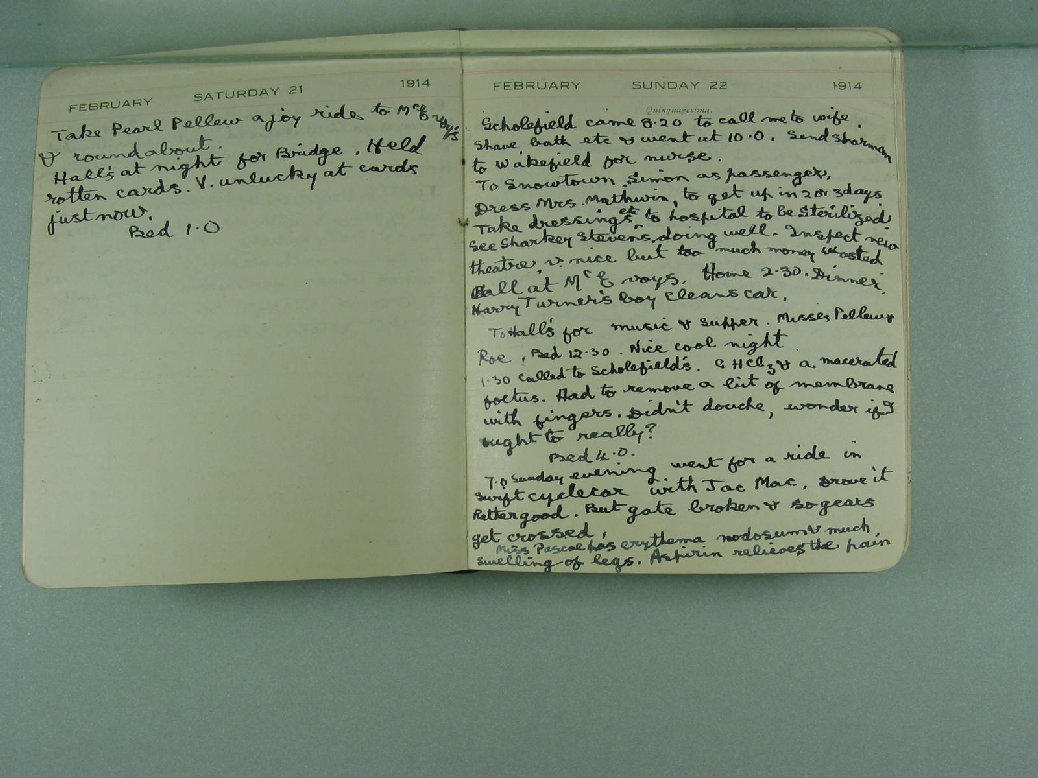 FEBRUARY SATURDAY 21 1914
Take Pearl Pellew a joy ride to McEvoy's
& round about.
Hall's at night for Bridge. Held
rotten cards. V. unlucky at cards
just now.
Bed 1.0
FEBRUARY SUNDAY 22 1914
Quinquagesima.
Scholefield came 8.20 to call me to wife.
Shave bath etc & went at 10.0. Send Sharman
to Wakefield for nurse.
To Snowtown Simon as passenger.
Dress Mrs. Mathwin, to get up in 2 or 3 days
Take dressings etc to hospital to be sterilized
See Sharkey Stevens, doing well. Inspect new
theatre, v. nice but too much money wasted
Call at McEvoys. Home 2.30. Dinner.
Harry Turner's boy cleans car.
To Hall's for music & supper. Misses Pellew &
Roe. Bed 12.30. Nice cool night
1.30 Called to Scholefield's. & a macerated
foetus. Had to remove a bit of membrane
with fingers. Didn't douche, wonder if I
ought to really?
Bed 4.0.
7.0 Sunday evening went for a ride in
Swift cyclecar with Jac Mac. Drove it
Rather good. But gate broken & so gears
get crossed.
Miss Pascoe has erythema nodosum & much
swelling of legs. Aspirin relieves the pain